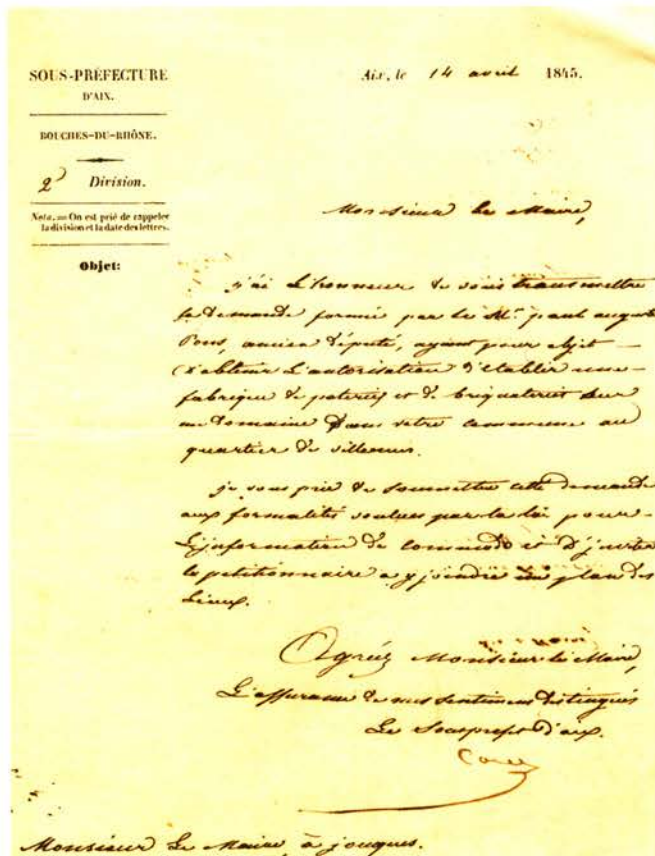 SOUS-PRÉFECTURE
D'AIX.
BOUCHES-DU-RHÔNE.
2e Division.
Nota. = On est prié de rappeler
la division et la date des lettres.
Objet:
Aix, le 14 avril 1845.
Monsieur le Maire,
j'ai l'honneur de vous transmettre
la demande formée par le Sr. paul auguste
Pons, ancien député, ayant pour objet
d'obtenir l'autorisation d'établir une
fabrique de poteries et de briqueteries sur
un Domaine Dans votre commune au
quartier de villemus.
je vous prie de soumettre cette demande
aux formalités voulues par la loi pour
L'information de commodo et D'inviter
le petitionnaire a y joindre un plan des
Lieux.
Agréez Monsieur le Maire,
L'assurance de mes sentimens distingués
Le Souspréfet D'aix.
Monsieur Le Maire à jouques.